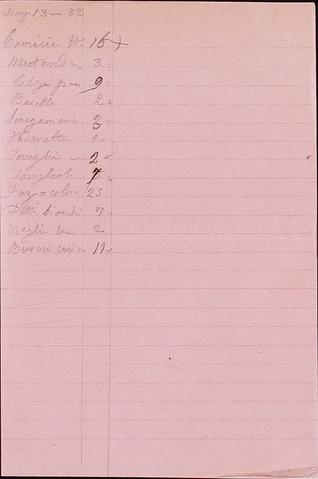 May 13 - 82
Camicie No 16 +
Mutande 3
Calze p 9
Berette 2
Sciugamani 3
Foderette
Tovaglie 2
Tovagliole 7
Faz = colore 25
Detti bianchi 7
Maglie 2
11